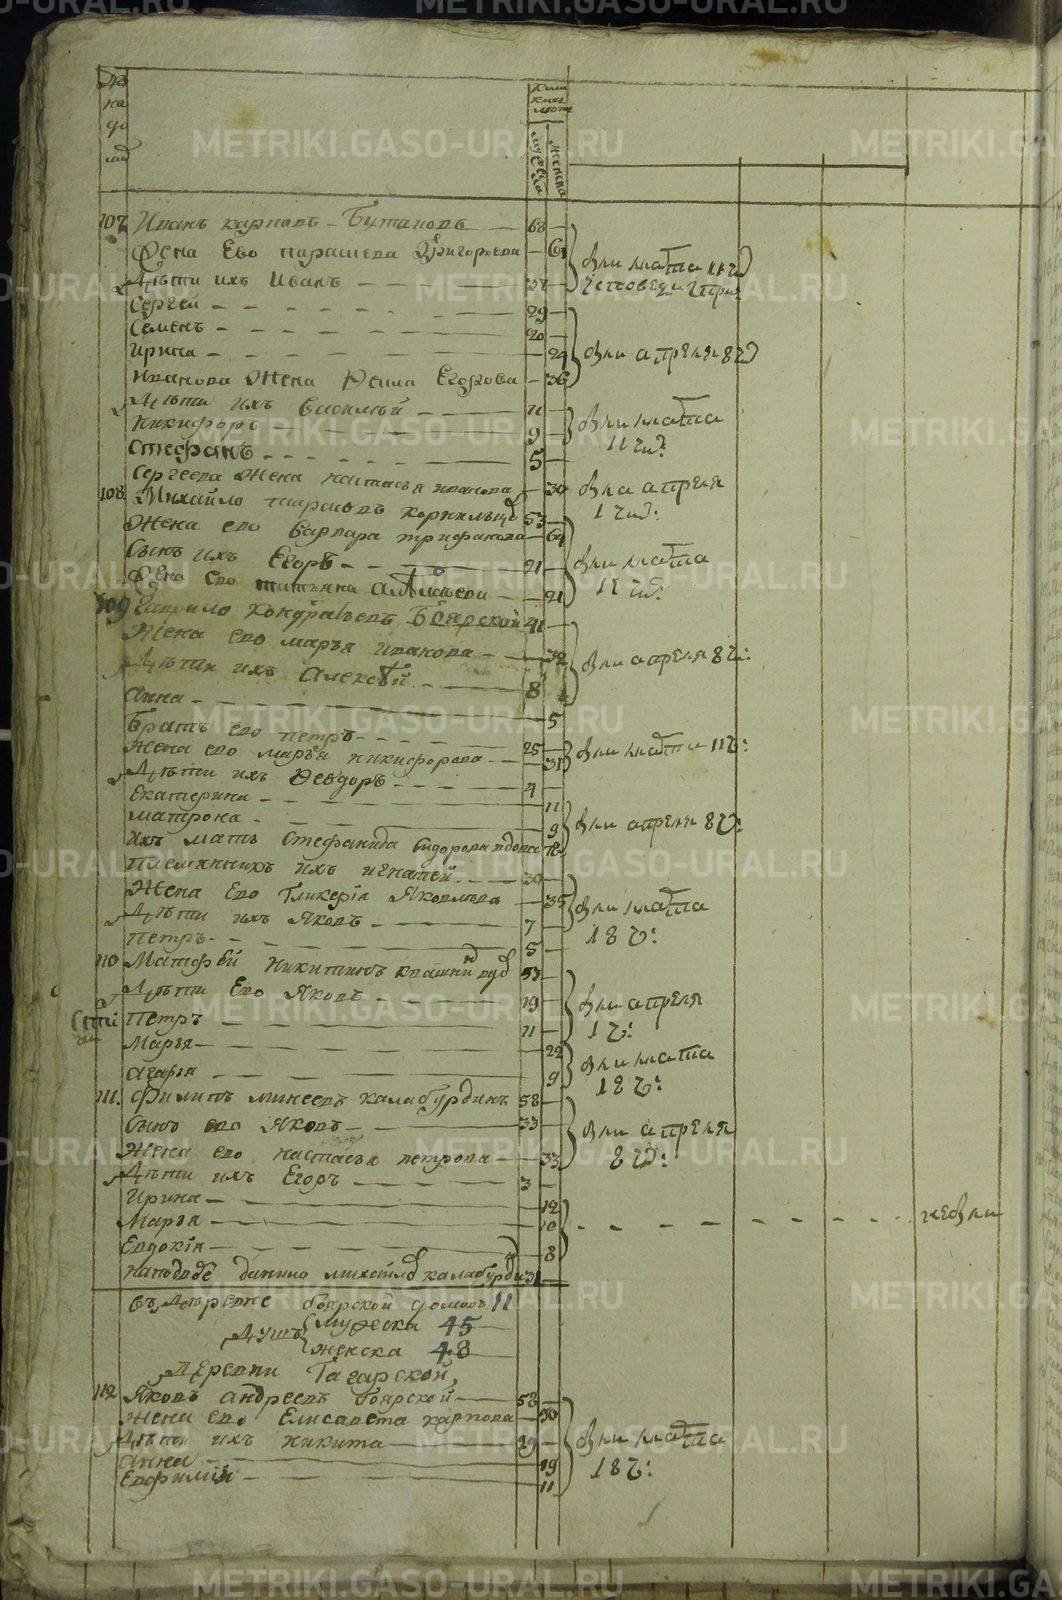 METRIKI.GASO-URAL.RU
на
Мужеска
Женска
107 Иванъ карповъ Бутаковъ 68
Жена Ево парасцева Григорьева 61
Дѣти ихъ Иванъ
Сергей 29
Семенъ 20
ирина 24
Иванова Жена Ефимиа Егорова 36
Дѣти ихъ Василѣй 11
Никифоръ 9
Стефанъ 5
Сергеева Жена настасья иванова 30
были апреля 8 ч
были марта
11 чи:
были апреля
1 чи:
108 Михайло тарасовъ 53
Жена ево варвара трифанова 61
Сынъ ихъ Егоръ 21
Жена ево татьяна 21
были марта
11 чи:
109 Гаврило кондратьевъ Боярской 41
Жена ево марья иванова 32
Дѣти ихъ Алексѣй 8
Анна 5
были апреля 8 ч:
Братъ ево петръ 25
Жена ево марья никифорова 31
были марта 11 ч:
Дѣти ихъ Феодоръ 4
Екатерина 11
матрона 9
Ихъ мать Стефанида Сидорова вдова 72
были апреля 8 ч:
племянникъ ихъ игнатей 30
Жена Ево Гликерїя Яковлева 35
Дѣти ихъ Яковъ 7
петръ 5
были марта
18 ч:
110 Матфѣй Никитинъ 53
Дѣти Ево Яковъ 19
петръ 11
Марья 22
агафья 9
были апреля
1 ч:
были марта
18 ч:
111. Филипъ минеевъ калабурдинъ 58
Сынъ ево Яковъ 33
Жена ево настасья петрова 33
Дѣти ихъ Егоръ 3
Ирина 12
Марья 10
Евдокїя 8
были апреля
8 ч:
небыли
данило михайловъ калабурдинъ 31
въ деревне боярской домовъ 11
Душъ
мужеска 45
женска 48
Деревни Тагарской
112 Яковъ андреевъ боярской 52
Жена ево Елисавета карпова 50
Дѣти ихъ никита 29
анна 19
Евфимїя 11
были марта
18 ч: